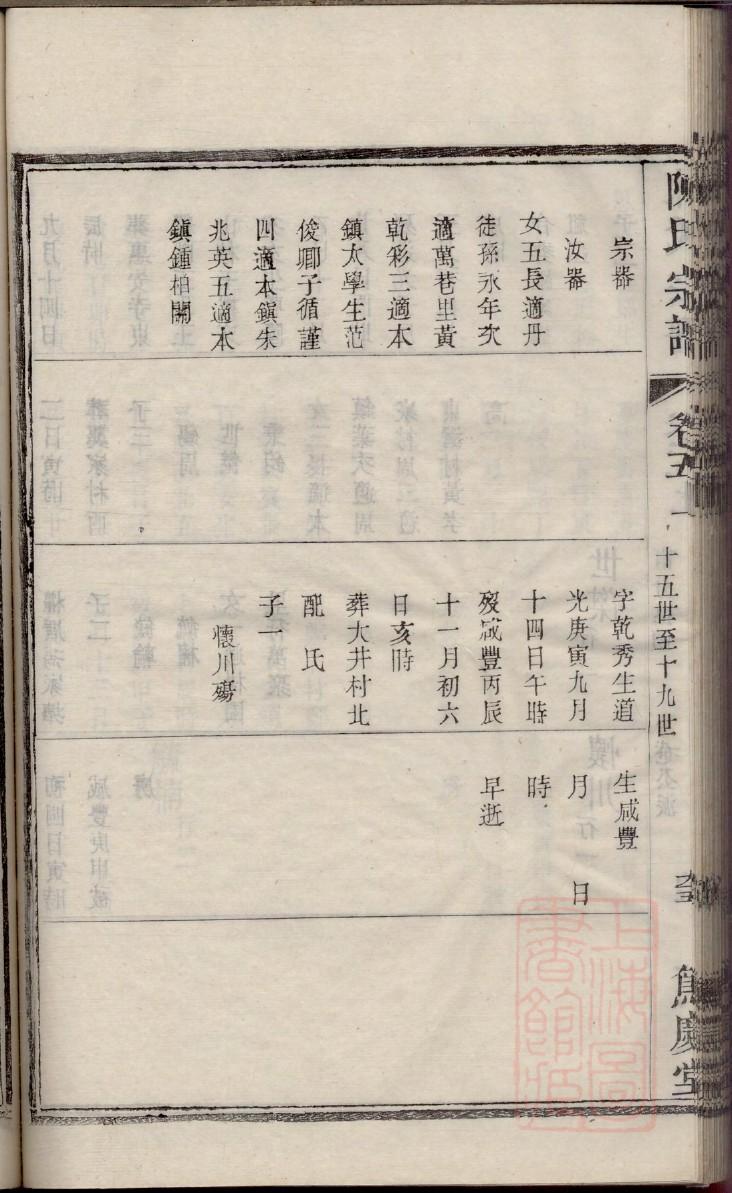 陳氏宗譜
卷五
十五世至十九世
篤慶堂
宗器
汝器
女五長適丹
徒孫永年次
適萬巷里黃
乾彩三適本
鎮太學生范
俊卿子循謹
四適本鎮朱
兆英五適本
鎮鍾柏關
字乾秀生道
光庚寅九月
十四日午時
歿咸豐丙辰
十一月初六
日亥時
葬大井村北
配 氏
子一
懷川殤
生咸豐
月 日
時
早逝
上海圖
書館藏